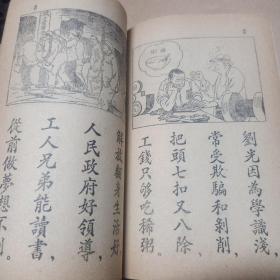 劉光因為學識淺
常受欺騙和剝削，
把頭七扣又八除，
工錢只够吃稀粥。
解放翻身生活好
人民政府好領導，
工人兄弟能讀書，
從前做夢想不到。